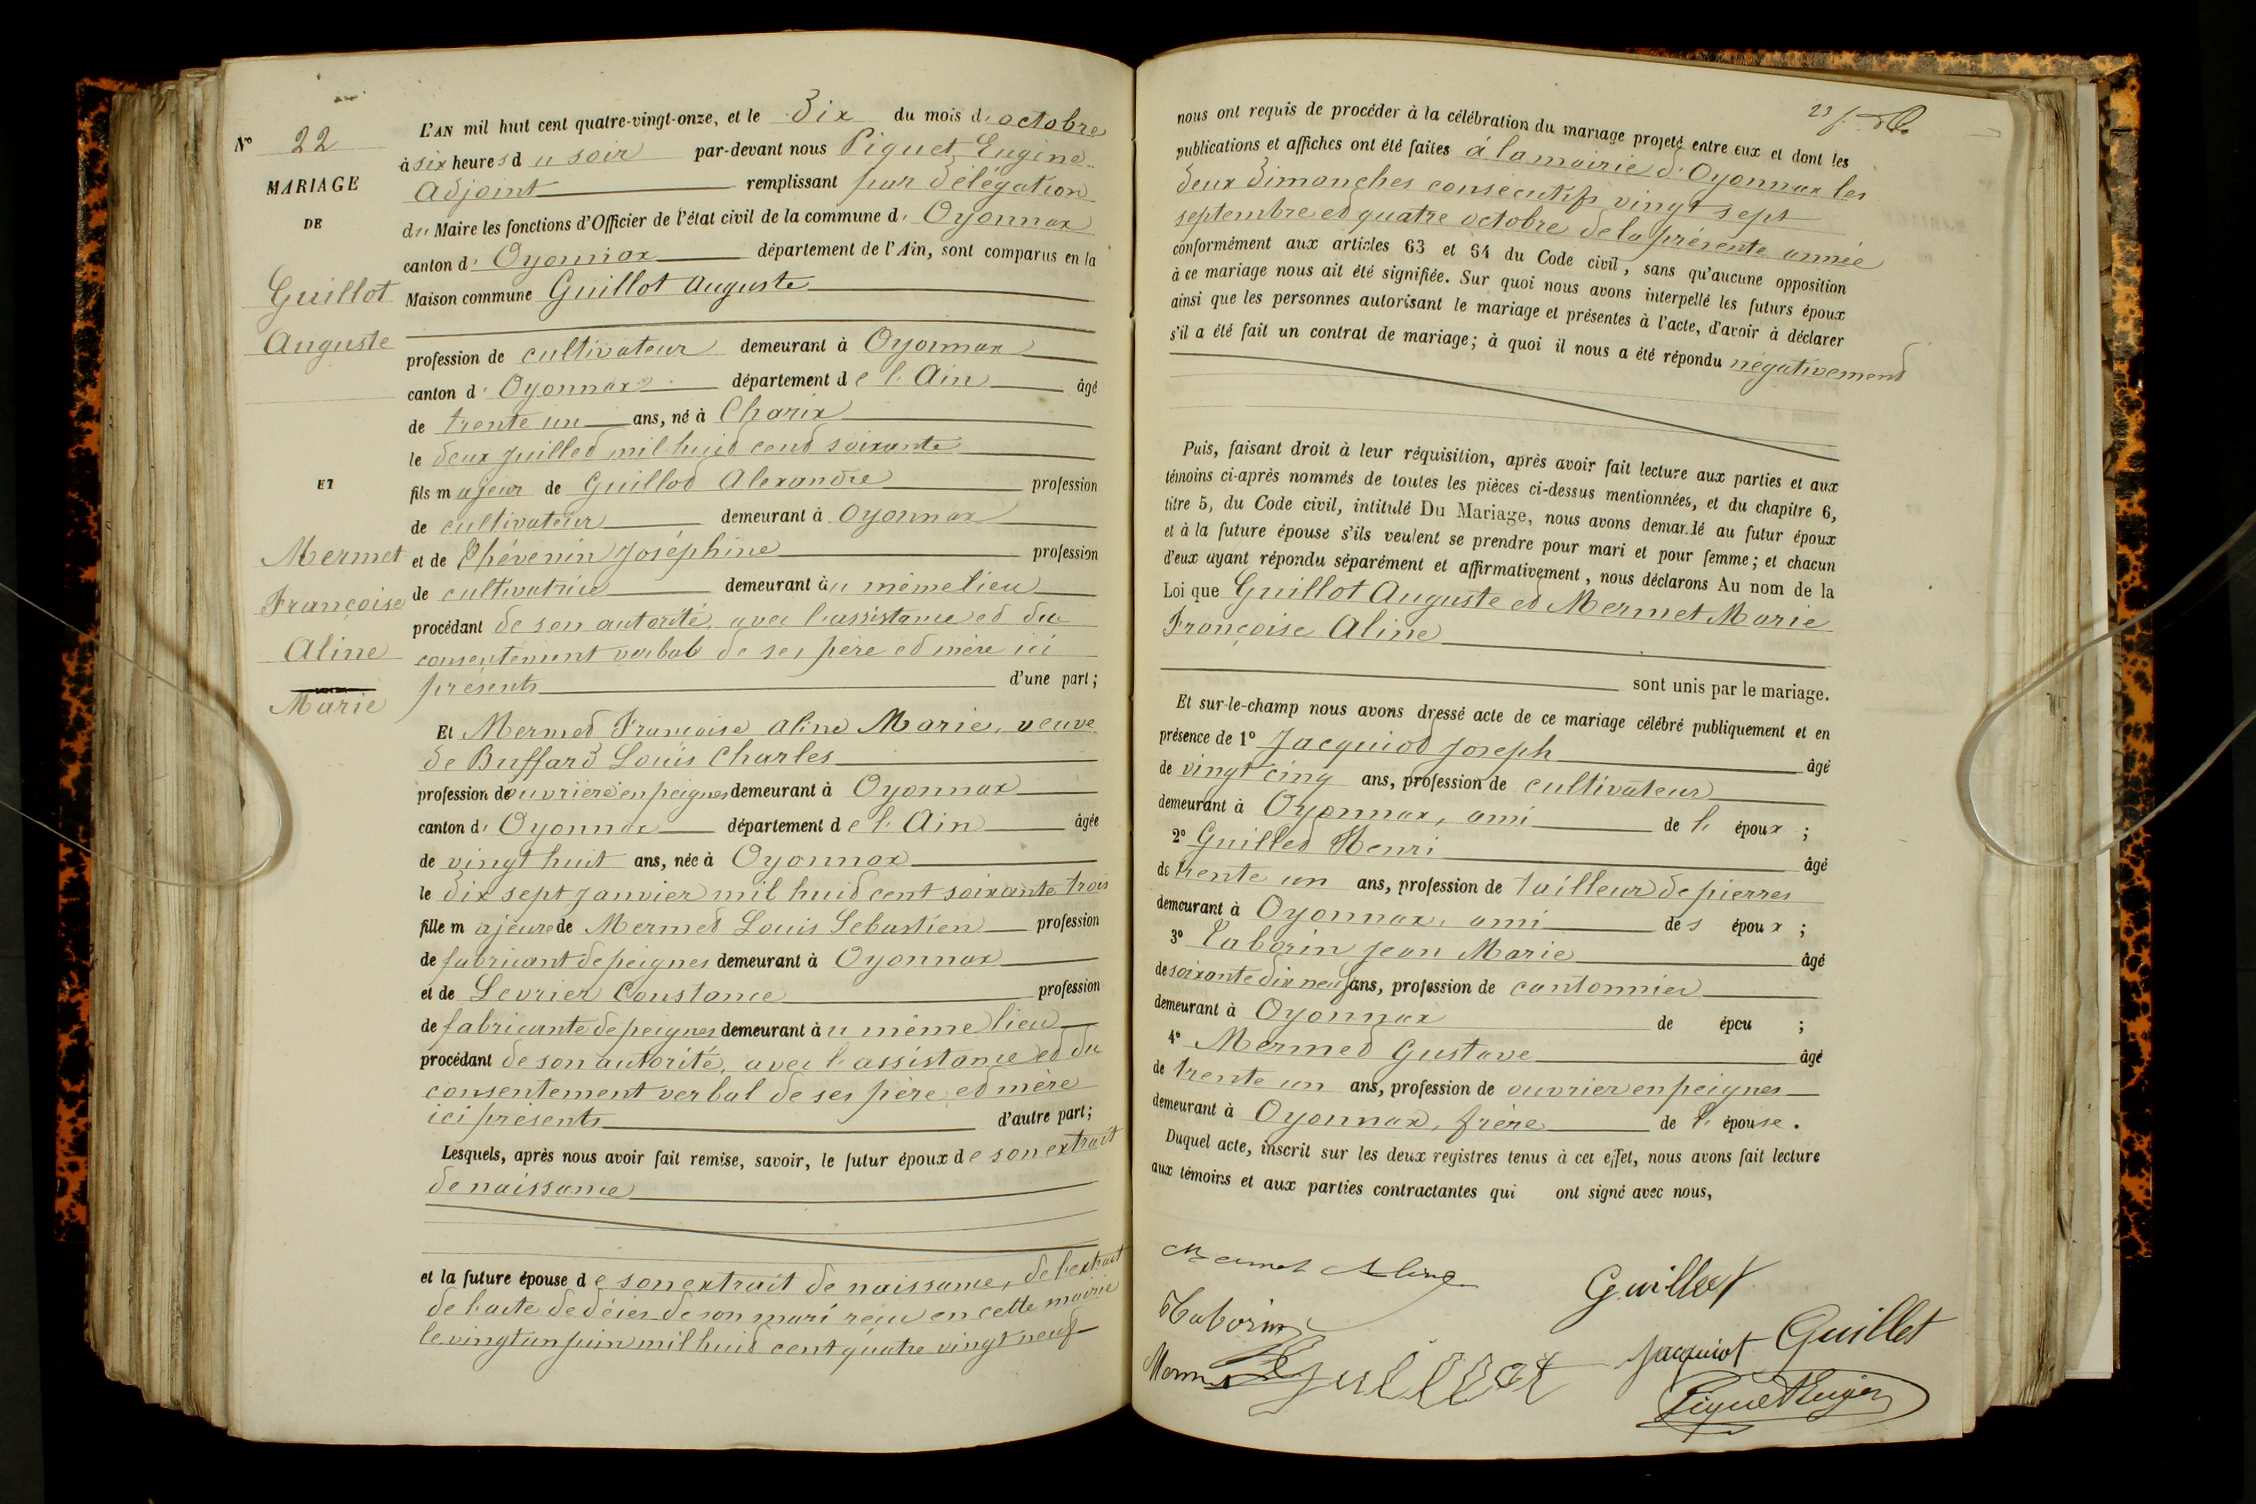 N° 22
MARIAGE
DE
Guillot
Auguste
ET
Mermet
Françoise
Aline
Marie
L'AN mil huit cent quatre-vingt-onze, et le Dix du mois d'octobre
à six heures du soir par-devant nous Piquet Eugène
Adjoint remplissant par délégation
du Maire les fonctions d'Officier de l'état civil de la commune d' Oyonnax
canton d' Oyonnax département de l'Ain, sont comparus en la
Maison commune Guillot Auguste
profession de cultivateur demeurant à Oyonnax
canton d' Oyonnax département de l'Ain âgé
de trente un ans, né à Charix
le deux juillet mil huit cent soixante
fils majeur de Guillot Alexandre profession
de cultivateur demeurant à Oyonnax
et de Thévenin Joséphine profession
de cultivatrice demeurant au même lieu
procédant de son autorité, avec l'assistance et du
consentement verbal de ses père et mère ici
présents d'une part;
Et Mermet Françoise Aline Marie, veuve
de Buffard Louis Charles
profession de ouvrière en peignes demeurant à Oyonnax
canton d' Oyonnax département de l'Ain âgée
de vingt huit ans, née à Oyonnax
le dix sept janvier mil huit cent soixante trois
fille majeure de Mermet Louis Sébastien profession
de fabricant de peignes demeurant à Oyonnax
et de Levrier Constance profession
de fabricante de peignes demeurant au même lieu
procédant de son autorité, avec l'assistance et du
consentement verbal de ses père et mère
ici présents d'autre part;
Lesquels, après nous avoir fait remise, savoir, le futur époux de son extrait
de naissance
et la future épouse de son extrait de naissance, de l'extrait
de l'acte de décès de son mari reçu en cette mairie
le vingt un juin mil huit cent quatre vingt neuf
23
nous ont requis de procéder à la célébration du mariage projeté entre eux et dont les
publications et affiches ont été faites à la mairie d'Oyonnax les
deux dimanches consécutifs vingt sept
septembre et quatre octobre de la présente année
conformément aux articles 63 et 64 du Code civil, sans qu'aucune opposition
à ce mariage nous ait été signifiée. Sur quoi nous avons interpellé les futurs époux
ainsi que les personnes autorisant le mariage et présentes à l'acte, d'avoir à déclarer
s'il a été fait un contrat de mariage; à quoi il nous a été répondu négativement
Puis, faisant droit à leur réquisition, après avoir fait lecture aux parties et aux
témoins ci-après nommés de toutes les pièces ci-dessus mentionnées, et du chapitre 6,
titre 5, du Code civil, intitulé Du Mariage, nous avons demandé au futur époux
et à la future épouse s'ils veulent se prendre pour mari et pour femme; et chacun
d'eux ayant répondu séparément et affirmativement, nous déclarons Au nom de la
Loi que Guillot Auguste et Mermet Marie
Françoise Aline
sont unis par le mariage.
Et sur-le-champ nous avons dressé acte de ce mariage célébré publiquement et en
présence de 1° Jacquiot Joseph âgé
de vingt cinq ans, profession de cultivateur
demeurant à Oyonnax, ami de l' époux ;
2° Guillet Henri âgé
de trente un ans, profession de tailleur de pierres
demeurant à Oyonnax, ami des époux ;
3° Taborin Jean Marie âgé
de soixante dix neuf ans, profession de cantonnier
demeurant à Oyonnax de épou ;
4° Mermet Gustave âgé
de trente un ans, profession de ouvrier en peignes
demeurant à Oyonnax, frère de l' épouse.
Duquel acte, inscrit sur les deux registres tenus à cet effet, nous avons fait lecture
aux témoins et aux parties contractantes qui ont signé avec nous,
Mermet Aline
Guillot
Taborin
Jacquiot Guillet
Guillot
Piquet Eugène